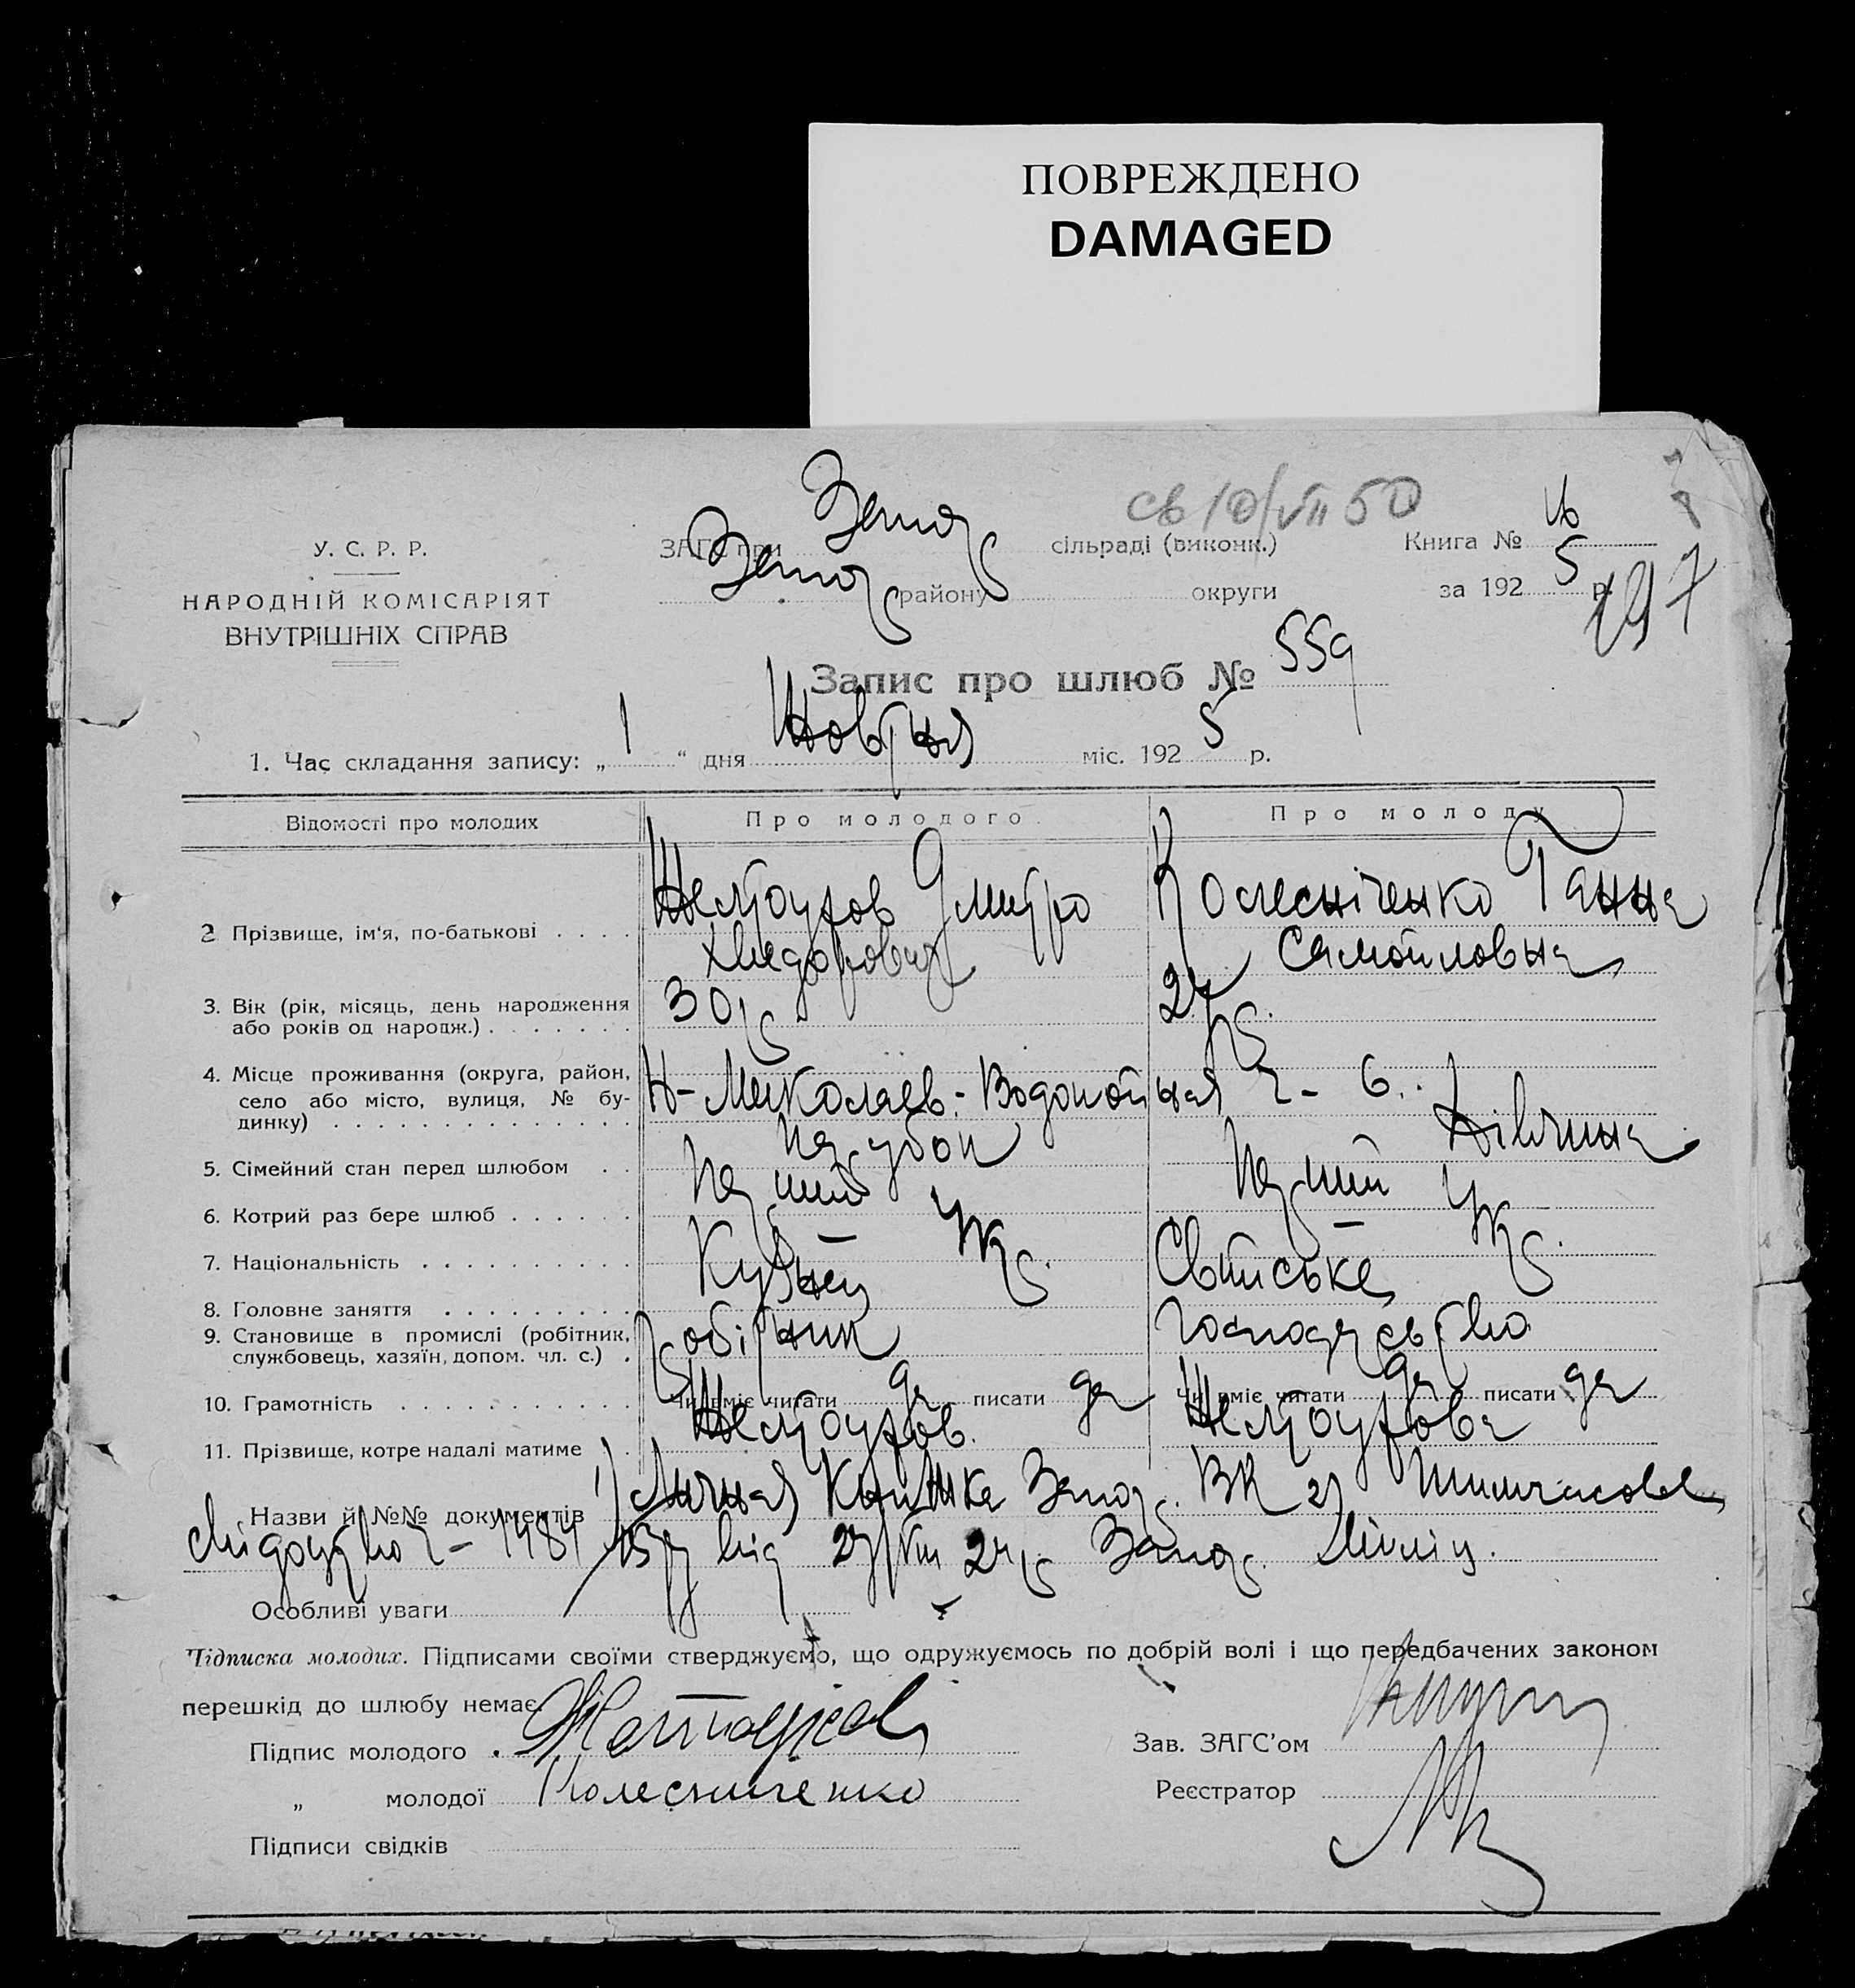 ПОВРЕЖДЕНО
DAMAGED
св 10/VII 50
У. С. Р. Р.
НАРОДНІЙ КОМІСАРІЯТ
ВНУТРІШНІХ СПРАВ
ЗАГС при Запор сільраді (виконк.) Книга №
Запор району округи за 192 5 р.
197
Запис про шлюб № 559
1. Час складання запису: „ 1 “ дня Жовтня міс. 192 5 р.
Відомості про молодих Про молодого Про молоду
2 Прізвище, ім'я, по-батькові Желтоухов Дмитро Колесніченко Ганна
Хведорович Самойловна
3. Вік (рік, місяць, день народження 30 р. 24 р.
або років од народж.)
4. Місце проживання (округа, район, Н-Миколаев.- Водопойная
село або місто, вулиця, № бу-
динку)
5. Сімейний стан перед шлюбом парубок Дівчина
6. Котрий раз бере шлюб перший перший
7. Національність Укр. Укр.
8. Головне заняття Кузнец Світське
9. Становище в промислі (робітник, робітник господарство
службовець, хазяїн, допом. чл. с.)
10. Грамотність Чи вміє читати да писати да Чи вміє читати да писати да
11. Прізвище, котре надалі матиме Желтоухов. Желтоухова
Назви й №№ документів 1) Личная Книжка Запор. ВК 2) Тимчасове
свідоцтво від Запор. Міліц.
Особливі уваги
Підписка молодих. Підписами своїми стверджуємо, що одружуємось по добрій волі і що передбачених законом
перешкід до шлюбу немає
Підпис молодого Желтоухов Зав. ЗАГС'ом
„ молодої Колесниченко Реєстратор
Підписи свідків